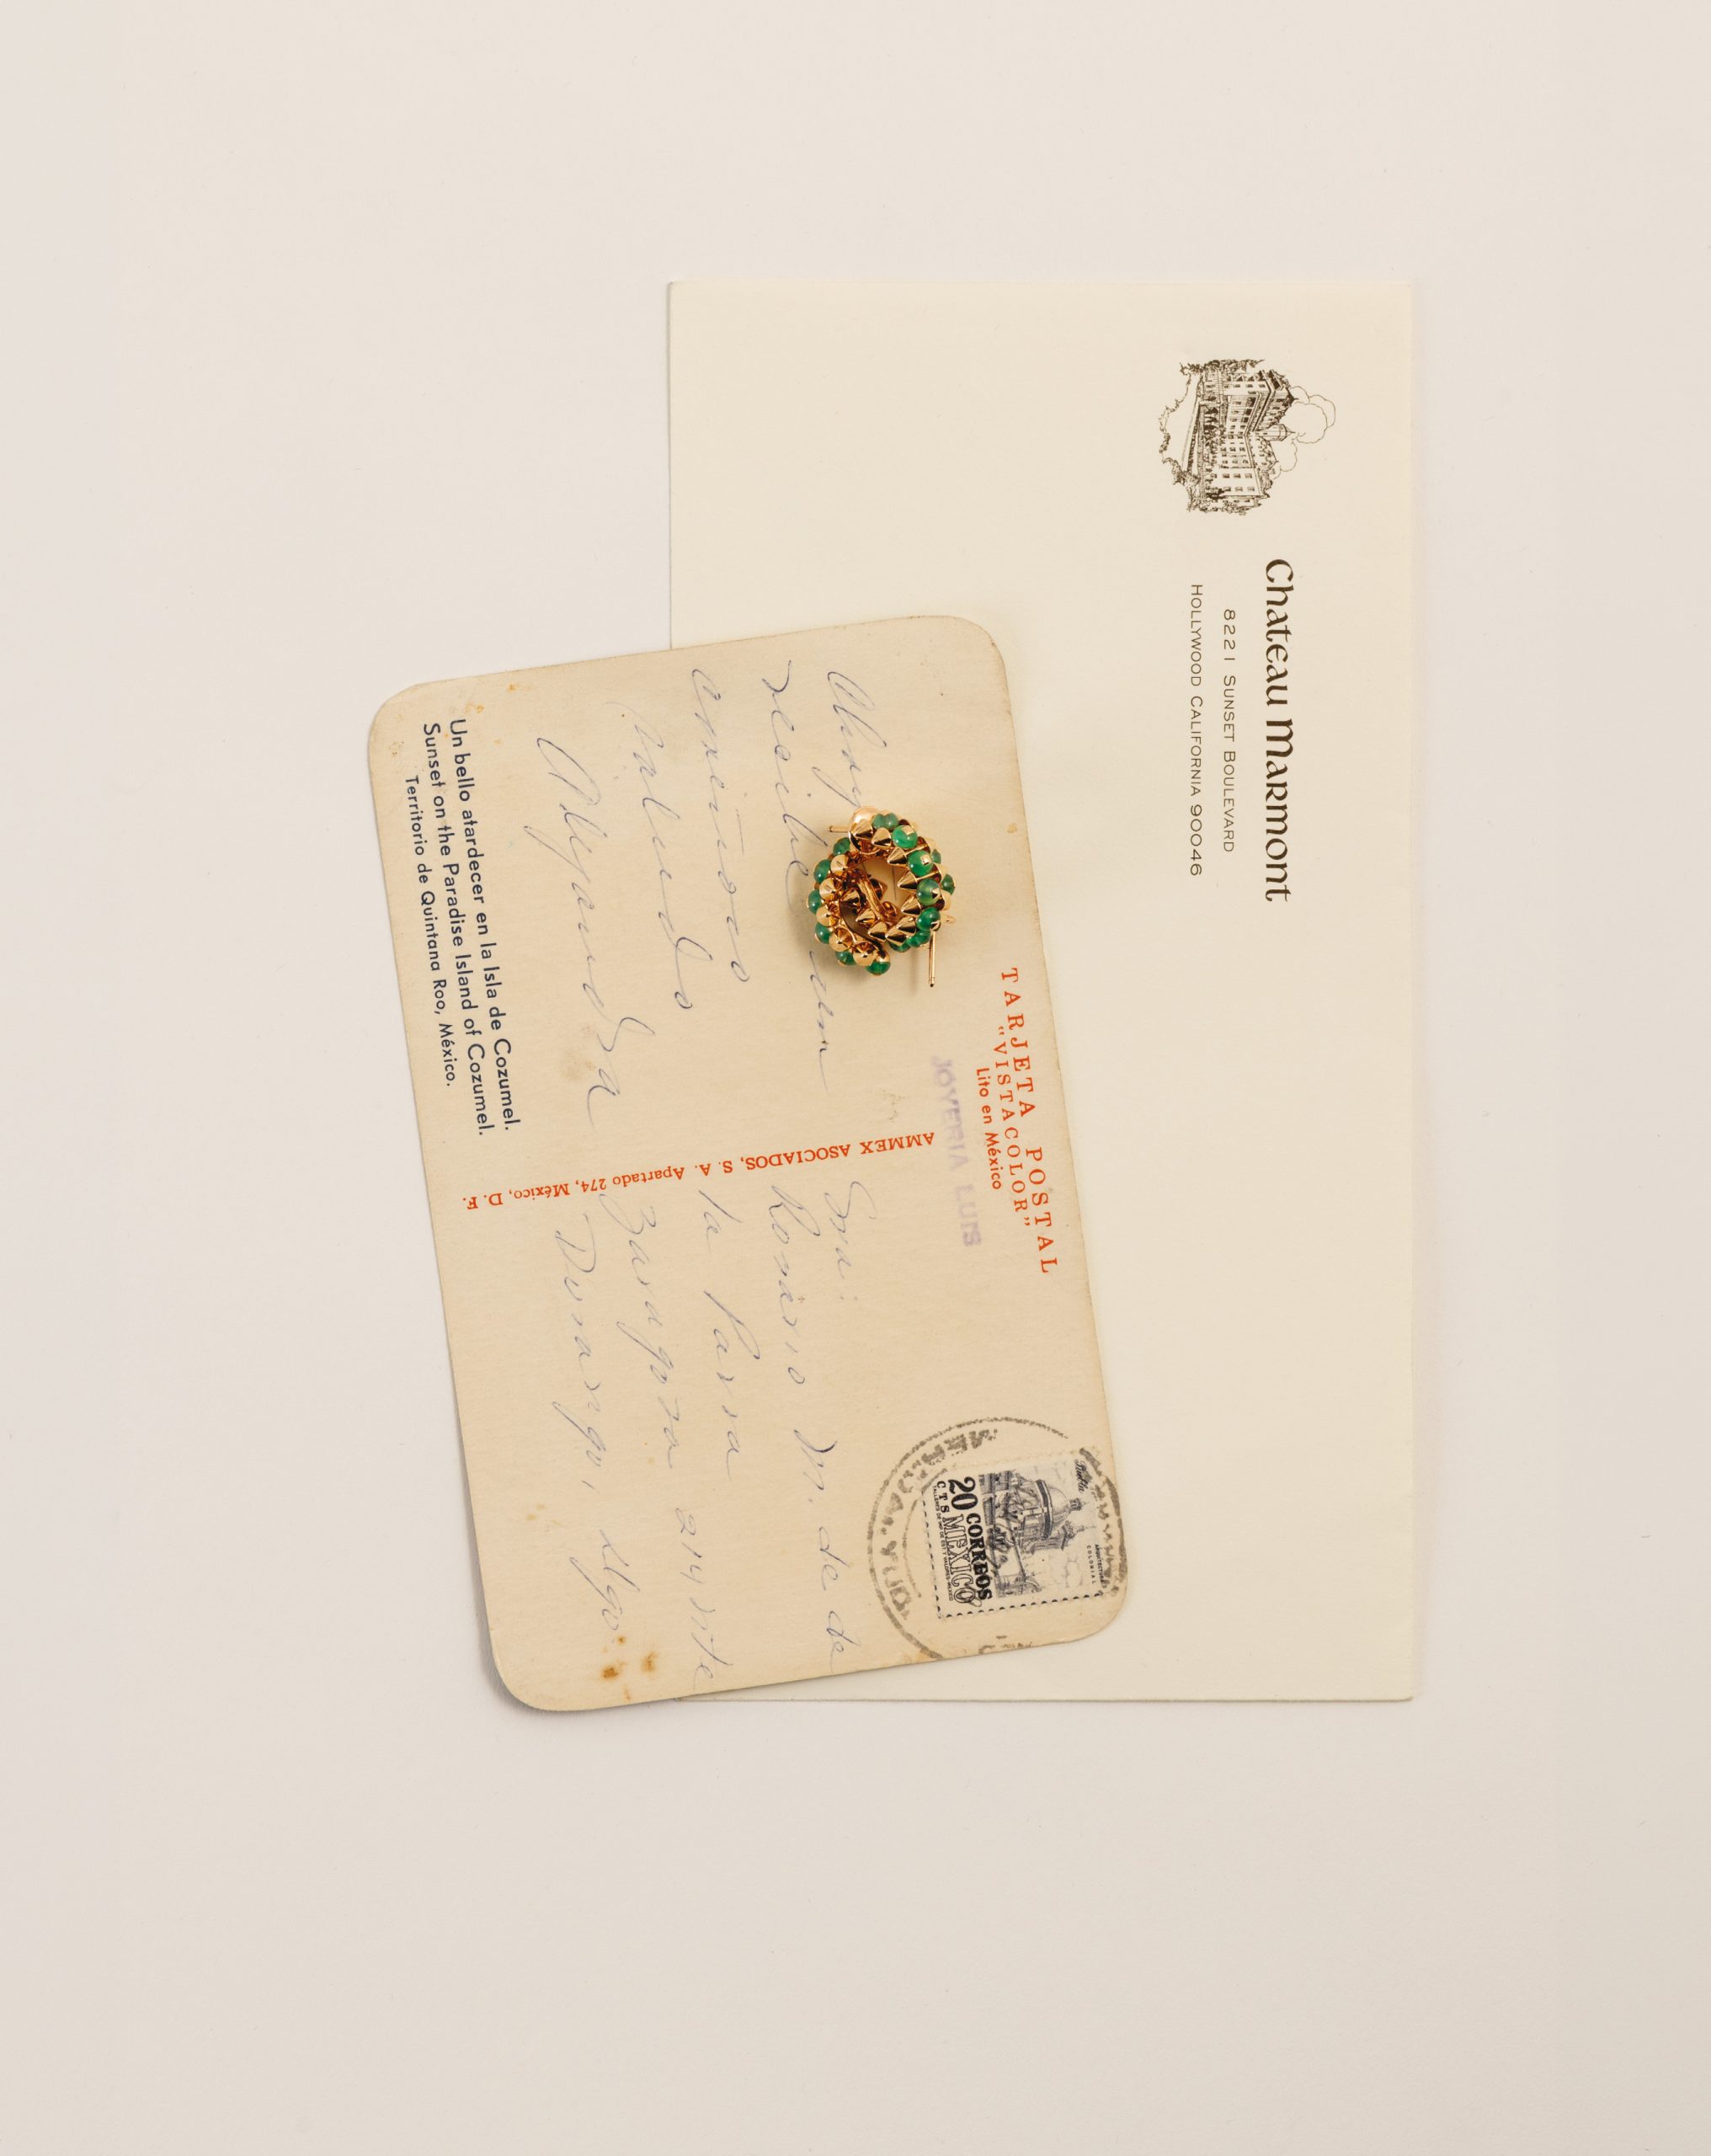 Chateau Marmont
8221 Sunset Boulevard
Hollywood California 90046
TARJETA POSTAL
"VISTACOLOR"
Lito en México
JOYERIA LUIS
recibe un
cariñoso
saludo
Alejandra
Un bello atardecer en la Isla de Cozumel.
Sunset on the Paradise Island of Cozumel.
Territorio de Quintana Roo, México.
AMMEX ASOCIADOS, S. A. Apartado 274, México, D. F.
Sra:
Rosario M. de de
la Parra
Zaragoza 214 Nte
Durango, Dgo
ARQUITECTURA
COLONIAL
Puebla
20 CORREOS
C.T.S MEXICO